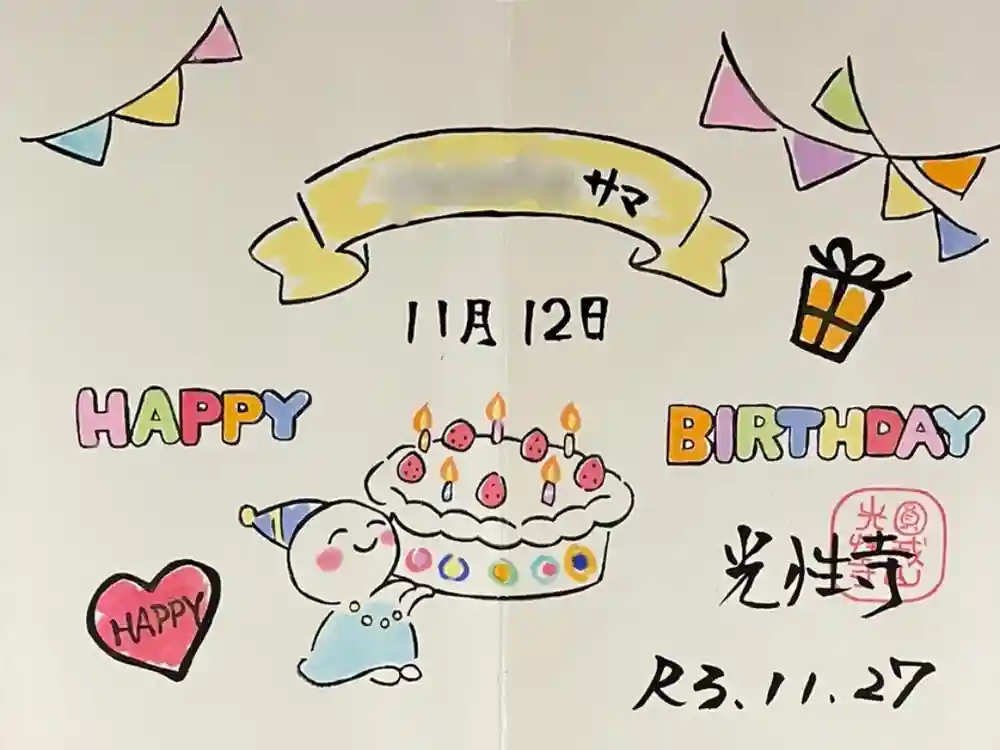 サマ
11月12日
HAPPY
BIRTHDAY
光性寺
HAPPY
R3.11.27